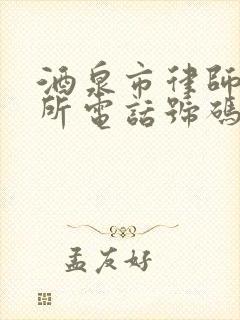 酒泉市律師
所電話號碼
孟友好